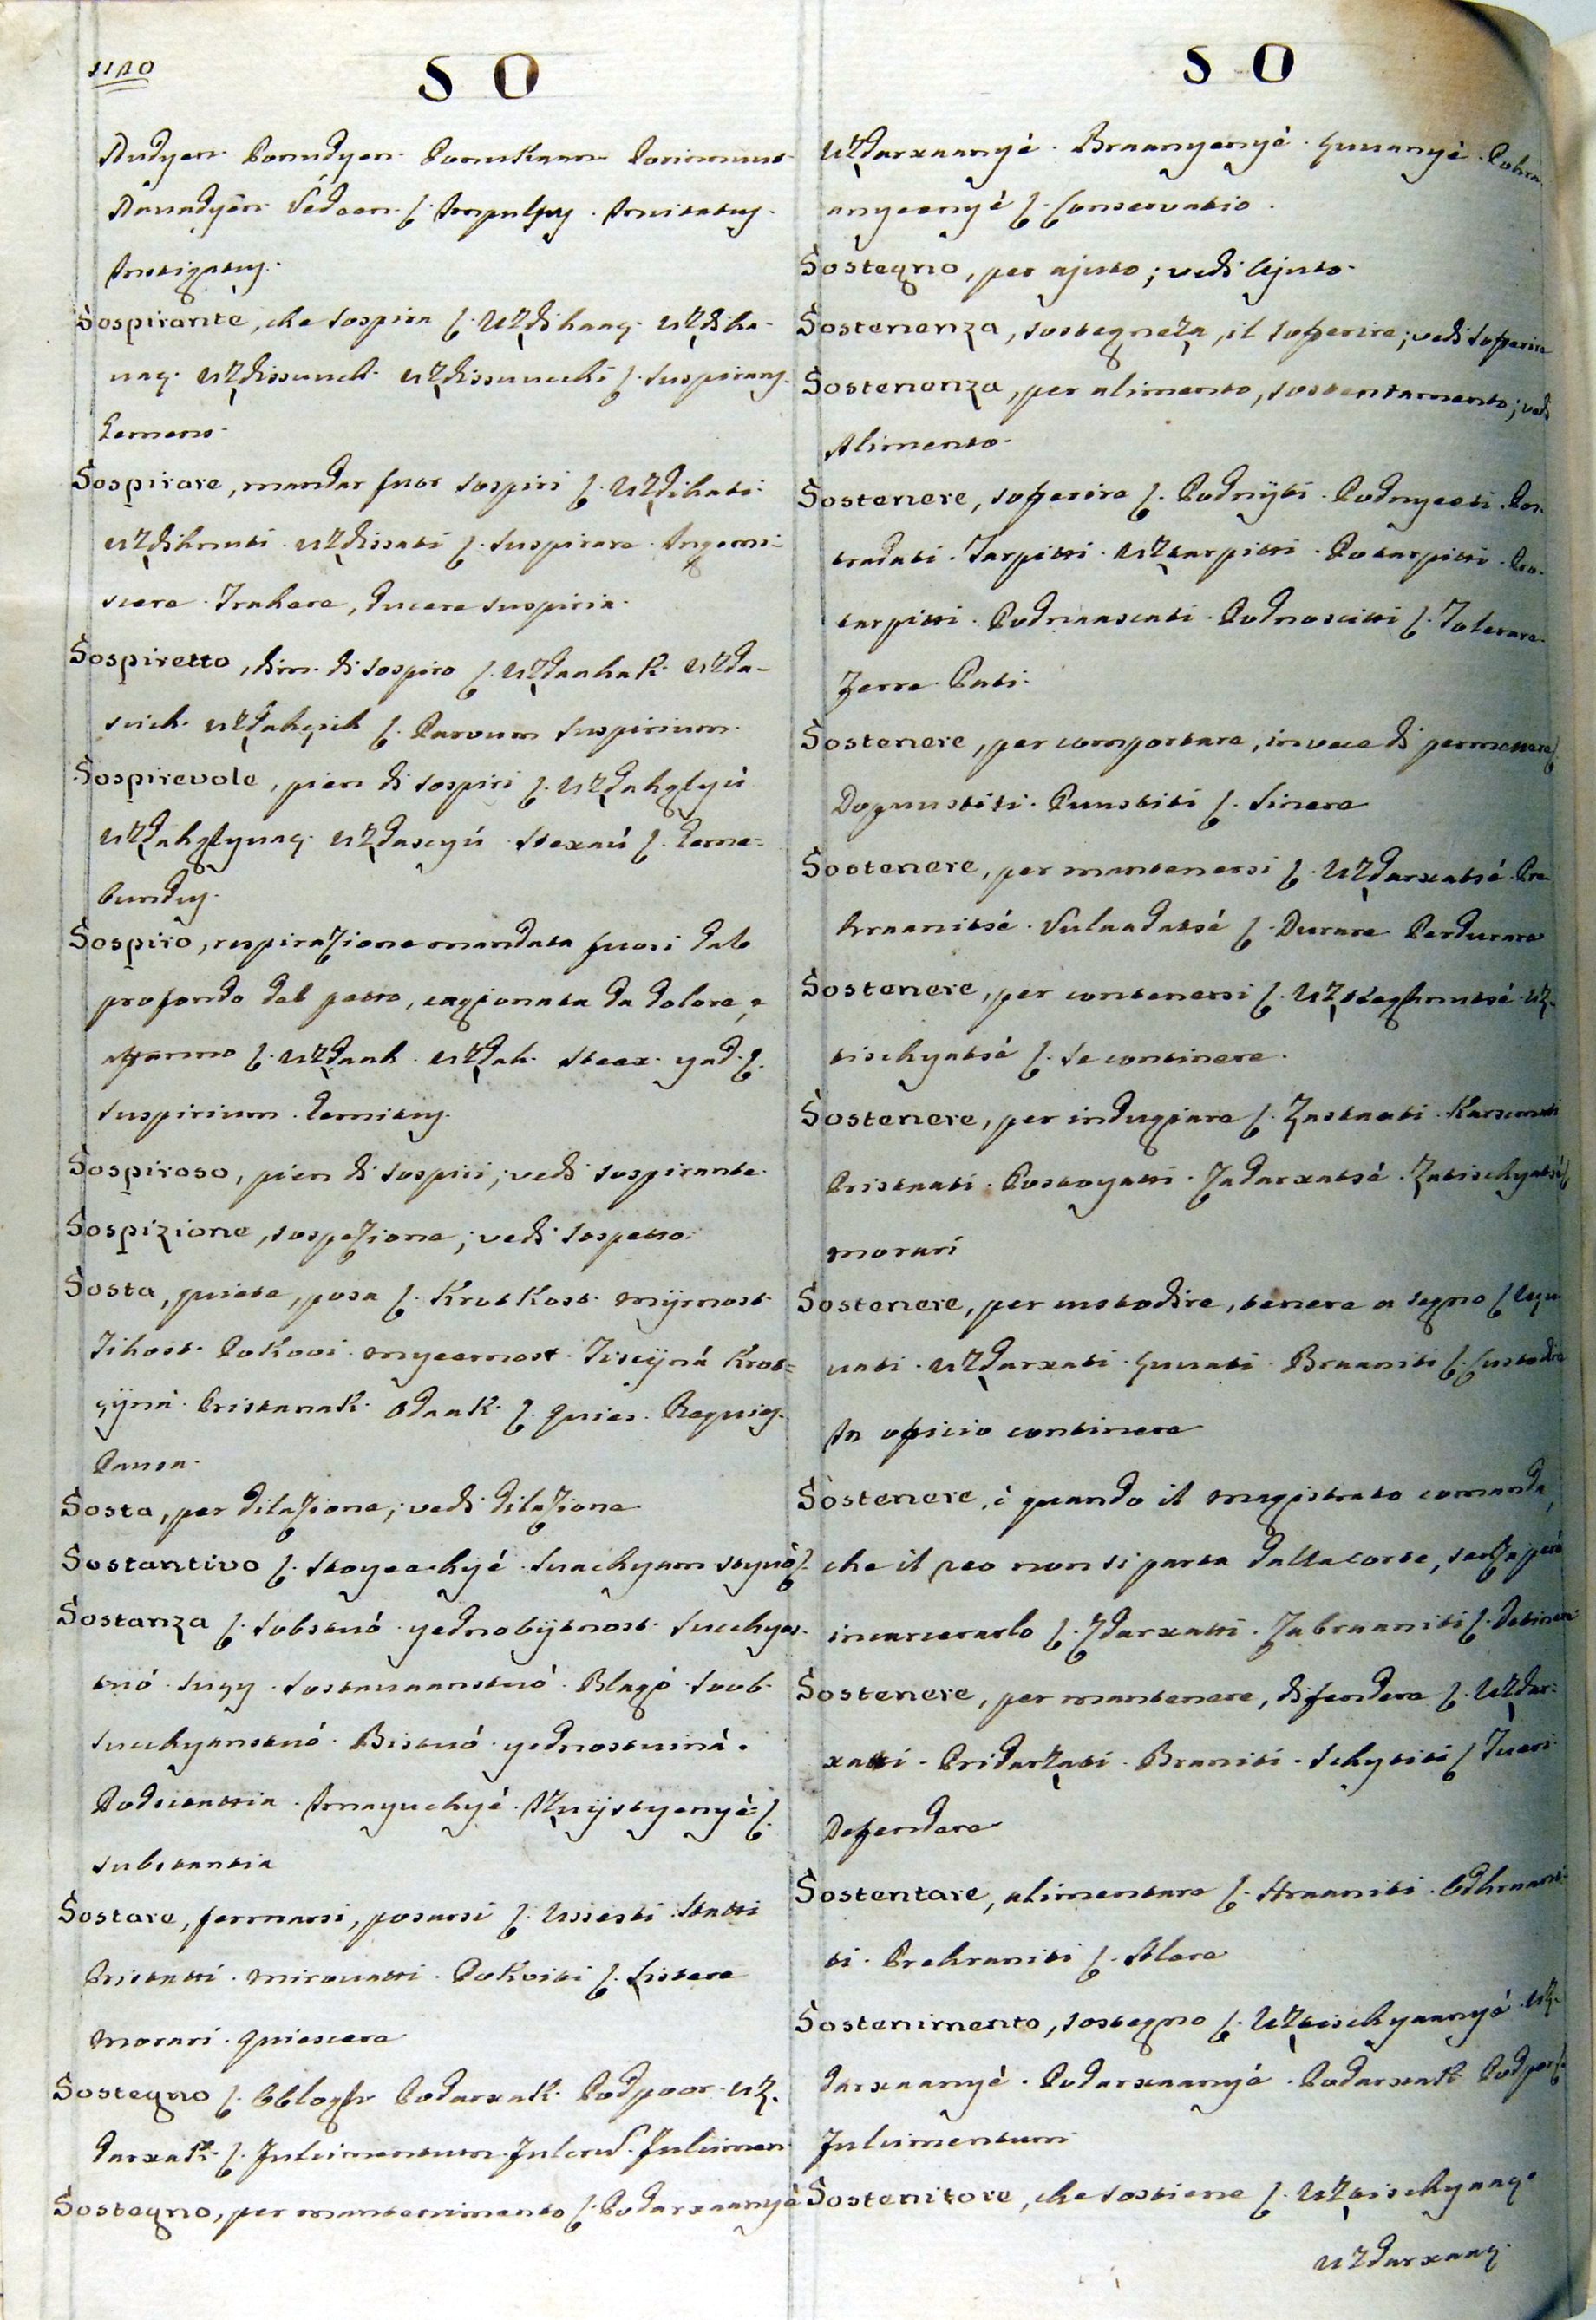 1110
S O
Nudyen. Ponudyen. Ponukaan. Porinnut.
Navadyen. Vedaen. (. Impulsus. Invitatus.
Instigatus.
Sospirante, che sospira (. Uzdihaaç. Uzdiha-
vaç. Uzdissuuch. Uzdissuuchi (. Suspirans.
Gemens.
Sospirare, mandar fuor sospiri (. Uzdihati.
Uzdihnuti. Uzdissati (. Suspirare. Ingemi-
scere. Trahere, ducere suspiria.
Sospiretto, dim. di sospiro (. Uzdaahak. Uzda-
scich. Uzdahçich (. Parvum suspirium.
Sospirevole, pien di sospiri (. Uzdahglyú
Uzdahglyvaç. Uzdascyú. Stexaú (. Geme=
bundus.
Sospiro, respirazione mandata fuori dal
profondo del petto, cagionata da dolore, e
affanno (. Uzdaah. Uzdah. Steax. yad. (.
Suspirium. Gemitus.
Sospiroso, pien di sospiri; vedi sospirante.
Sospizione, sospezione; vedi sospetto.
Sosta, quiete, posa (. Krotkost. Mijrnost.
Tihost. Pokooi. Myeernost. Tiscijná Krot=
çijna. Pristanak. Odaak. (. Quies. Requies.
Pausa.
Sosta, per dilazione; vedi dilazione.
Sostantivo (. Stoyeechyé. Suachyam styuó (.
Sostanza (. Sobstuó. yednobijtnost. Succhyes-
tuó. Sugy. Sostavaanstuó. Blagó. Soob-
Succhyanstuó. Bistuó. yednostuiná.
Podstattia. Imayuchyé. Izuijstyenyé (.
Substantia
Sostare, fermarsi, posarsi (. Ussesti. Statti
Pristatti. mirouatti. Pokoiti (. Sistere
Morari. Quiescere
Sostegno (. Oblogh. Podarxak. Podpoor. Uz-
darxak. (. Fulcimentum. Fulcrum. Fulcimen
Sostegno, per mantenimento (. Podarxaanyé
S O
Uzdarxaanyé. Braanyenyé. Çuuanyé. Pohra-
anyeenyé (. Conservatio.
Sostegno, per ajuto; vedi Ajuto.
Sostenenza, sostegneza, il sofferire; vedi sofferire
Sostenenza, per alimento, sostentamento; vedi
Alimento.
Sostenere, sofferire (. Podnijti. Podnyeeti. Pos-
tradati. Tarpitti. Uztarpitti. Potarpitti. Pre-
tarpitti. Podnaascati. Podnoscitti (. Tolerare.
Ferre. Pati.
Sostenere, per comportare, invece di permettere (.
Dopuustiti. Puustiti (. Sinere
Sostenere, per mantenersi (. Uzdarxatsé. Pre-
hraanitsé. Vulaadatsé (. Durare. Perdurare
Sostenere, per contenersi (. Uzsteghnutsé. Uz-
tischyatsé (. Se continere.
Sostenere, per indugiare (. Zastaati. Karsmati
Pristaati. Postoyatti. Zadarxatsé. Zatischyatsé (.
morari
Sostenere, per custodire, tenere a segno (. Uçu-
vati. Uzdarxati. Çuuati. Braaniti (. Custodire
In oficio continere
Sostenere, è quando il magistrato comanda,
che il reo non si parta dalla corte, senza però
incarcerarlo (. Zdarxatti. Zabraaniti (. Detinere
Sostenere, per mantenere, difendere (. Uzdar=
xatti. Pridarzati. Braniti. Schytiti (. Tueri
Defendere
Sostentare, alimentare (. Hraaniti. Odhraani-
ti. Prehraniti (. Alere
Sostenimento, sostegno (. Uztischyaanyé. Uz-
darxaanyé. Podarxaanyé. Podarxak. Podpor (.
Fulcimentum
Sostenitore, che sostiene (. Uztischyaaç.
Uzdarxaaç.